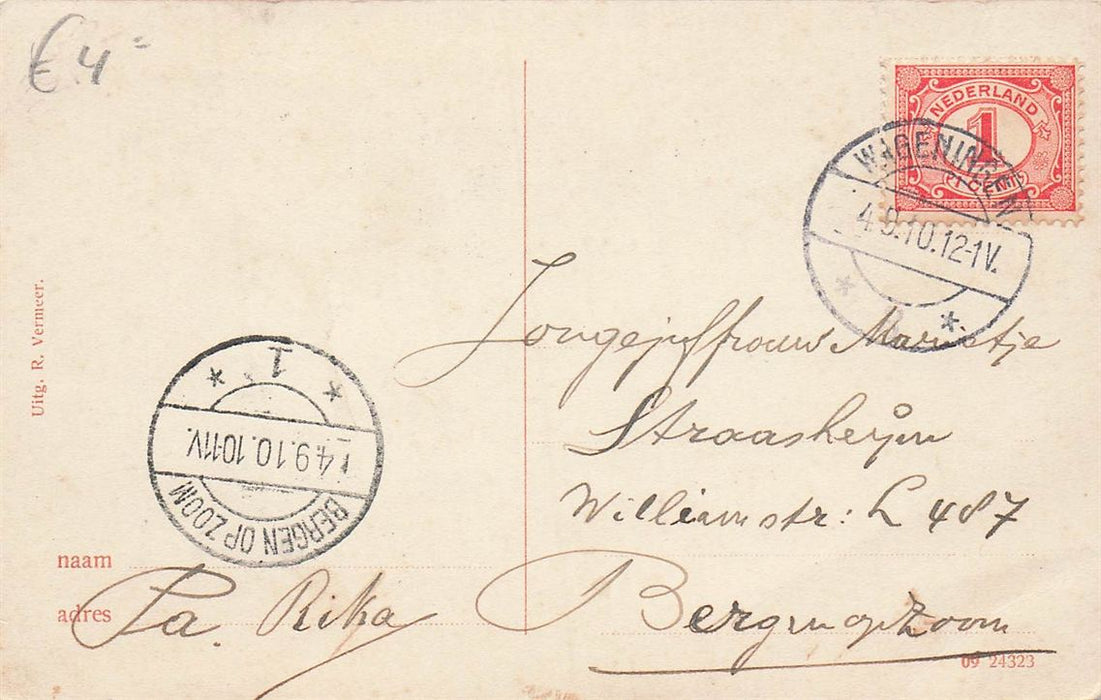 € 4 =
NEDERLAND
1
1 CENT
WAGENINGEN
4.9.10.12-1V.
Jongejuffrouw Marietje
Straasheijm
Willemstr: L 487
Bergen op Zoom
1
4.9.10.10-11V.
BERGEN OP ZOOM
Uitg. R. Vermeer.
naam
adres
Pa. Rika
09 24323